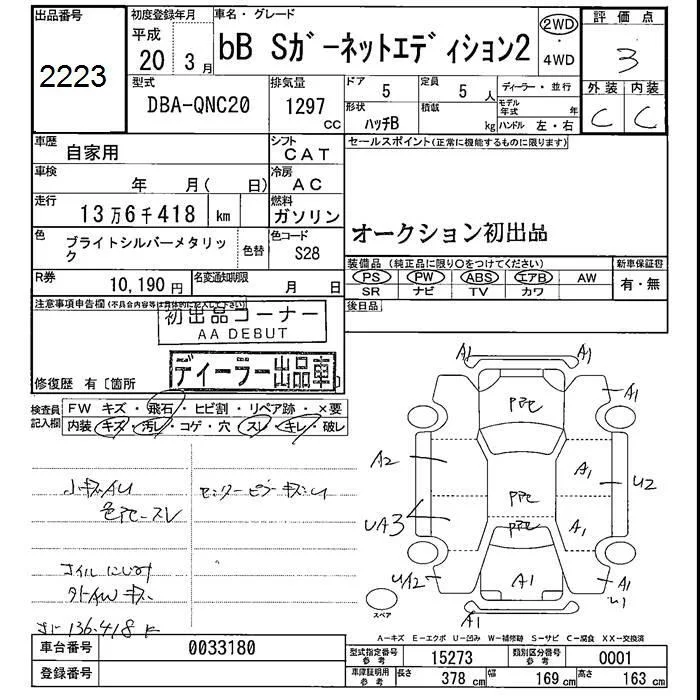 出品番号
2223
初度登録年月
平成
20 3月
車名・グレード
bB Sガーネットエディション2
2WD
・
4WD
評価点
3
型式
DBA-QNC20
排気量
1297
cc
ドア
5
定員
5人
形状
ハッチB
積載
kg
ディーラー・並行
モデル年式 年
ハンドル 左・右
外装 内装
C C
車歴
自家用
シフト
CAT
車検
年 月( 日)
冷房
AC
走行
13万6千418 km
燃料
ガソリン
色
ブライトシルバーメタリック
色替
色コード
S28
R券
10,190円
名変通知期限
月 日
セールスポイント(正常に機能するものに限ります)
オークション初出品
装備品(純正品に限り○をつけてください)
PS PW ABS エアB AW
SR ナビ TV カワ
新車保証書
有・無
後日品
注意事項申告欄(不具合内容等は具体的に記入して下さい)
初出品コーナー
AA DEBUT
ディーラー出品車
修復歴 有〔箇所
検査員記入欄
FW キズ・飛石・ヒビ割・リペア跡・×要
内装・キズ・汚レ・コゲ・穴・スレ・キレ・破レ
小キズAU
色アセ・スレ
センターピラーキズU
オイルにじみ
外AWキズ
136.418 K
A1 A1
A1
PPC
A2
A1
U2
PPC
UA3
A1
PPC
UA2
A1
A1
U1
A1
スペア
A―キズ E―エクボ U―凹み W―補修跡 S―サビ C―腐食 XX―交換済
車台番号
0033180
登録番号
型式指定番号
参考
15273
類別区分番号
参考
0001
車庫証明用
参考
長さ
378 cm
幅
169 cm
高さ
163 cm